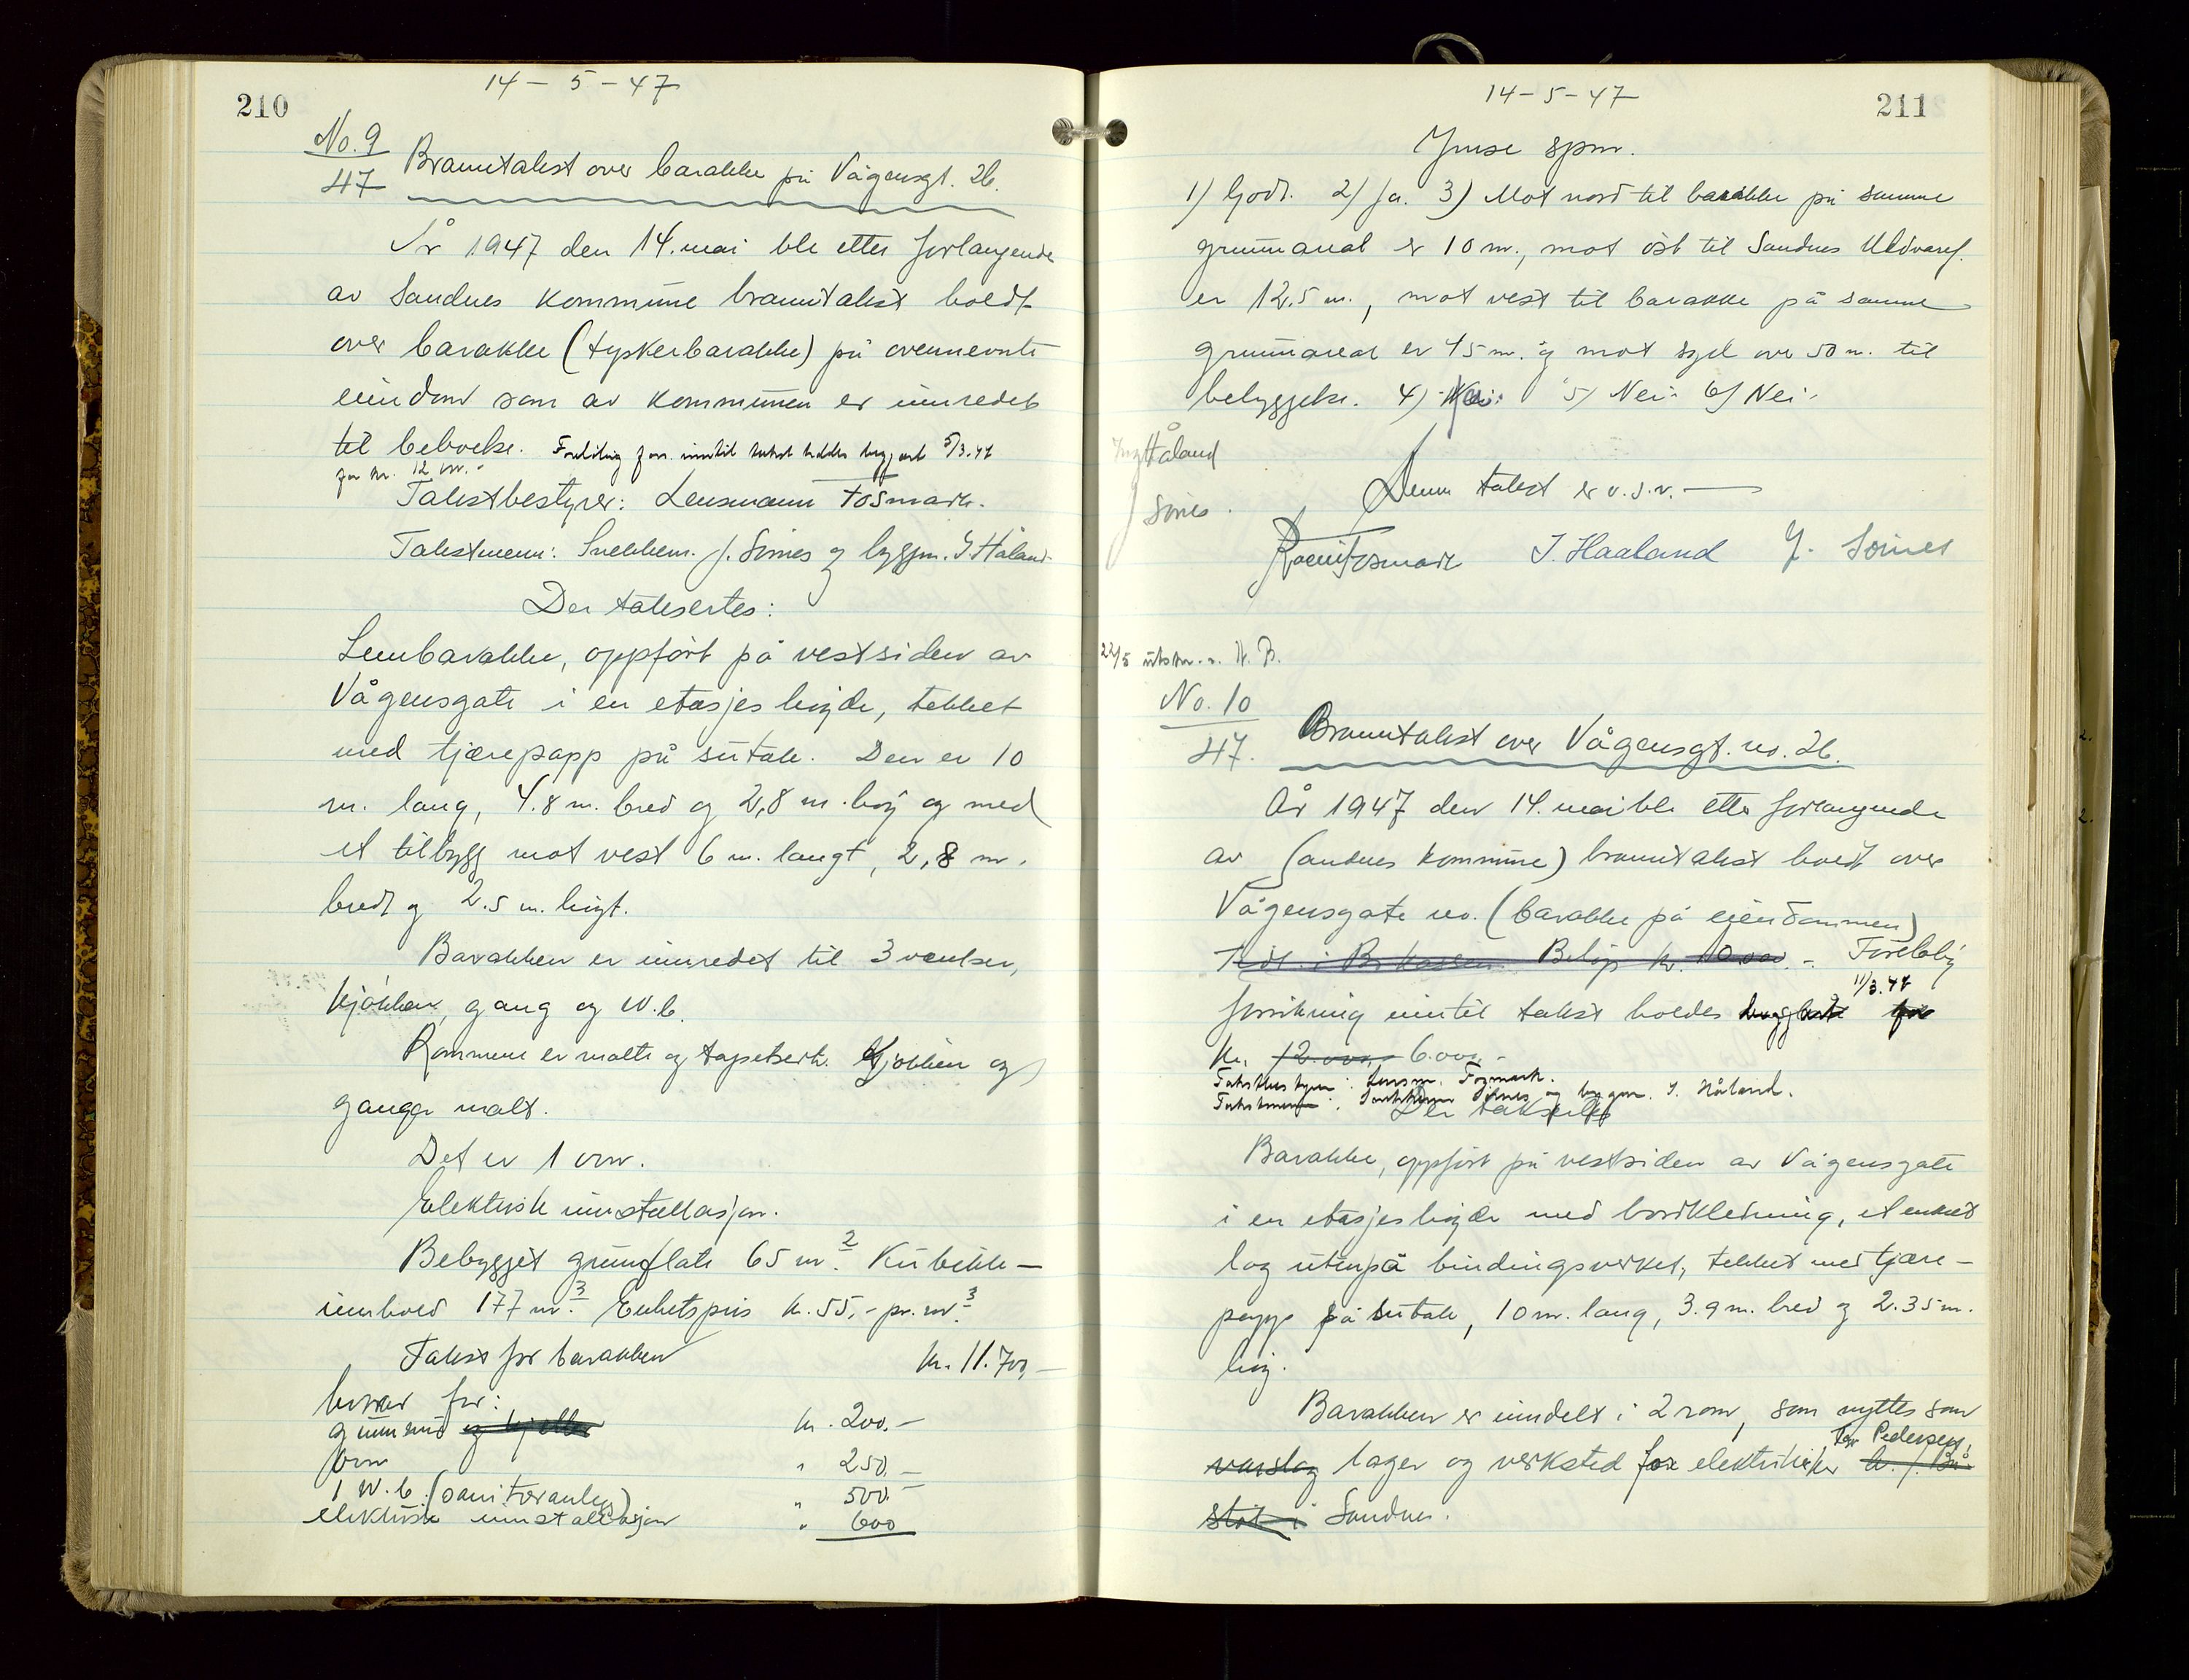 210
14 – 5 – 47
No. 9
47
Branntakst over barakke på Vågensgt. 26.
År 1947 den 14. mai ble etter forlangende
av Sandnes kommune branntakst holdt
over barakke (tyskerbarakke) på ovennevnte
eiendom som av kommunen er innredet
til beboelse. Foreløbig fors. inntil takst holdes begjært 5/3.47
for kr. 12 000.-
Takstbestyrer: Lensmann Fosmark.
Takstmenn: Snekkerm. J. Sörnes og byggm. I. Håland.
Der taksertes:
Lembarakke, oppført på vestsiden av
Vågensgate i en etasjes høyde, tekket
med tjærepapp på sutak. Den er 10
m. lang, 4.8 m. bred og 2,8 m. høy og med
et tilbygg mot vest 6 m. langt, 2,8 m.
bredt og 2.5 m. høyt.
Barakken er innredet til 3 værelser,
kjøkken, gang og W.C.
Rommene er malte og tapetserte. Kjøkken og
ganger malt.
Det er 1 ovn.
Elektrisk innstallasjon.
Bebygget grunnflate 65 m². Kubikk–
innhold 177 m³. Enhetspris kr. 55,- pr. m³
Takst for barakken kr. 11.700,–
hvorav for:
grunnmur og kjeller kr. 200.–
ovn " 250.–
1 W.C. (sanitæranlegg) " 500.–
elektrisk innstallasjon " 600
14 – 5 – 47
211
Ymse spm.
1) Godt. 2) Ja. 3) Mot nord til barakke på samme
grunnareal er 10 m., mot øst til Sandnes Uldvaref.
er 12.5 m., mot vest til barakke på samme
grunnareal er 45 m. og mot syd over 50 m. til
bebyggelse. 4) 5) Nei. 6) Nei.
Håland
Sörnes.
Denne takst er v.s.v. —
Fosmark I. Haaland J. Sörnes
22/5 utskr. s. N. B.
No. 10
47.
Branntakst over Vågensgt. no. 26.
År 1947 den 14. mai ble etter forlangende
av (Sandnes kommune) branntakst holdt over
Vågensgate no. (barakke på eiendommen)
Beløp kr. 10.000.- Foreløbig
forsikring inntil takst holdes begjært 11/3.47 for
kr. 12.000,- 6.000,-
Takstbestyrer: Lensm. Fosmark.
Takstmenn: Snekkerm Sörnes og byggm. I. Håland.
Der takseres
Barakke, oppført på vestsiden av Vågensgate
i en etasjes høyde med bordkledning, et enkelt
lag utenpå bindingsverket, tekket med tjære–
papp på sutak, 10 m. lang, 3.9 m. bred og 2.35 m.
høy.
Barakken er inndelt i 2 rom, som nyttes som
lager og verksted for elektriker Tor Pedersen,
Sandnes.